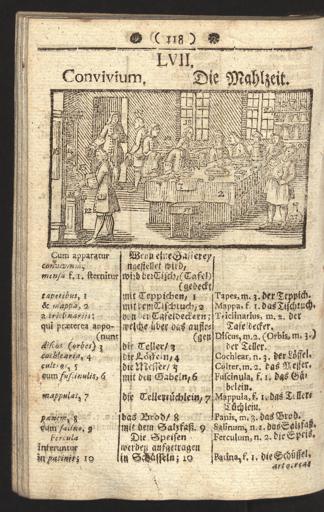 ( 118 )
LVII,
Convivium, Die Mahlzeit.
Cum apparatur Wenn eine Gasterey
convivium, angestellet wird,
mensa f. 1. sternitur wird der Tisch, (Tafel)
(gedeckt
tapetibus, 1 mit Teppichen, 1 Tapes, m. 3. der Teppich.
& mappa, 2 mit dem Tischtuch, 2 Mappa, f. 1. das Tischtuch.
a tricliniariis; von den Tafeldeckern; Tricliniarius, m. 2. der
qui præterea appo- welche über das auftra- Tafeldecker.
(nunt (gen Discus, m. 2. (Orbis, m. 3.)
discos (orbes) 3 die Teller/ 3 der Teller.
cochlearia, 4 die Löffeln, 4 Cochlear, n. 3. der Löffel.
cultros, 5 die Messer/ 5 Culter, m. 2. das Messer.
cum fuscinulis, 6 mit den Gabeln, 6 Fuscinula, f. 1. das Gä-
belein.
mappulas, 7 die Tellertüchlein, 7 Mappula, f. 1. das Teller-
Tüchlein.
panem, 8 das Brod/ 8 Panis, m. 3. das Brod.
cum salino, 9 mit dem Saltzfaß. 9 Salinum, n. 2. das Saltzfaß.
Fercula Die Speisen Ferculum, n. 2. die Speis.
inferuntur werden aufgetragen
in patinis; 10 in Schüsseln; 10 Patina, f. 1. die Schüssel.